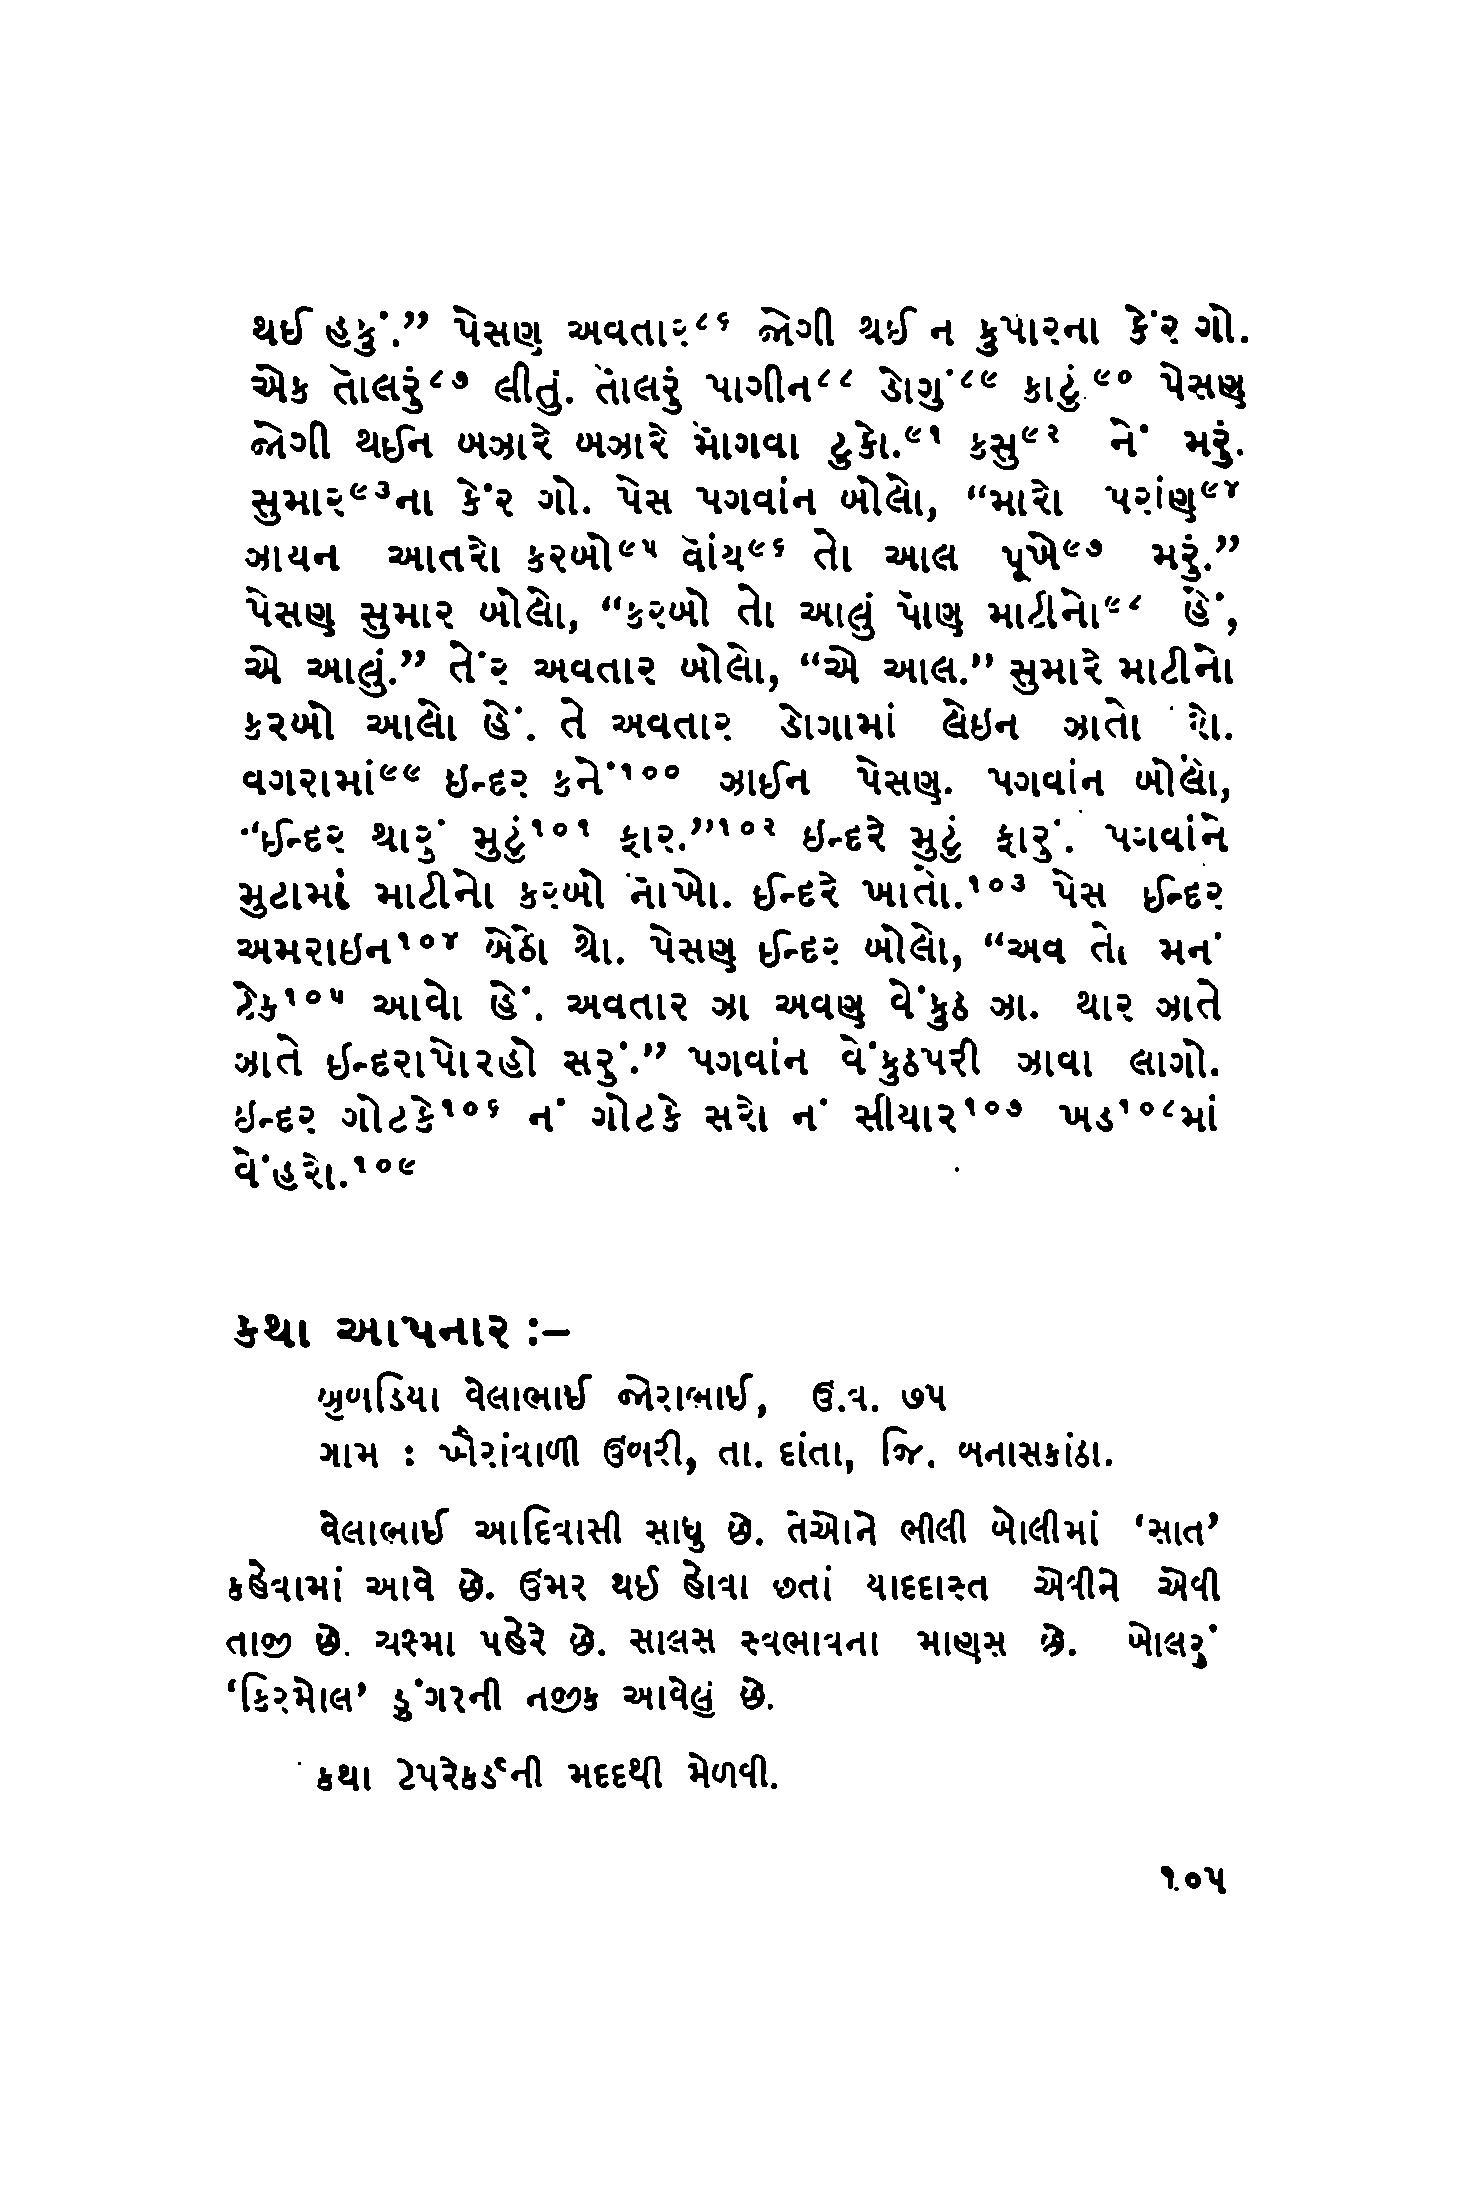 થઈ હકું.” પેસણ અવતાર૮૬ જોગી થઈ ન કુપારના કેં૨ ગો.
એક તૅાલરું૮૭ લીતું. તૅાલરું પાગીન૮૮ ડોગું૮૯ કાટું.૯૦ પેસણ
જોગી થઈન બઝારે બઝારે મૅાગવા ટુકો.૯૧ કસુ૯૨ નેં મરું.
સુમાર૯૩ના કેં૨ ગો. પેસ પગવાંન બોલો, “મારો પરાંણ૯૪
ઝાયન આતરો કરબો૯૫ વૅાંય૯૬ તો આલ પૂખે૯૭ મરું.”
પેસણ સુમાર બોલો, “કરબો તો આલું પૅાણ માટીનો૯૮ હેં,
એ આલું.” તેં૨ અવતાર બોલો, “એ આલ.” સુમારે માટીનો
કરબો આલો હેં. તે અવતાર ડોગામાં લેઇન ઝાતો રો.
વગરામાં૯૯ ઇન્દર કનેં૧૦૦ ઝાઈન પેસણ. પગવાંન બોલો,
“ઈન્દર થારું મુટું૧૦૧ ફાર.”૧૦૨ ઇન્દરે મુટું ફારું. પગવાંને
મુટામાં માટીનો કરબો નૅાખો. ઈન્દરે ખાતો.૧૦૩ પેસ ઈન્દર
અમરાઇન૧૦૪ બેઠો થો. પેસણ ઈન્દર બોલો, “અવ તો મનં
ટેક૧૦૫ આવો હેં. અવતાર ઝા અવણ વેંકુઠ ઝા. થાર ઝાતે
ઝાતે ઈન્દરાપોરહો સરું.” પગવાંન વેંકુઠપરી ઝાવા લાગો.
ઇન્દર ગોટકે૧૦૬ નં ગોટકે સરો નં સીયાર૧૦૭ ખડ૧૦૮માં
વેંહરો.૧૦૯
કથા આપનાર :–
બુળડિયા વેલાભાઈ જોરાભાઈ, ઉ.વ. ૭૫
ગામ : ખૈરાંવાળી ઉંબરી, તા. દાંતા, જિ. બનાસકાંઠા.
વેલાભાઈ આદિવાસી સાધુ છે. તેઓને ભીલી બોલીમાં ‘સાત’
કહેવામાં આવે છે. ઉંમર થઈ હોવા છતાં યાદદાસ્ત એવીને એવી
તાજી છે. ચશ્મા પહેરે છે. સાલસ સ્વભાવના માણસ છે. ખોલરું
‘કિરમોલ’ ડુંગરની નજીક આવેલું છે.
કથા ટેપરેકર્ડની મદદથી મેળવી.
૧૦૫